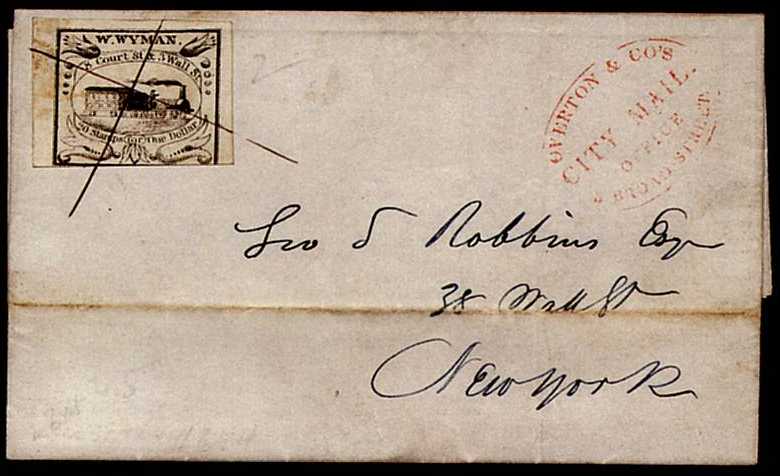 W. WYMAN.
8 Court St & 3 Wall St.
20 Stamps for One Dollar
OVERTON & CO'S
CITY MAIL.
OFFICE
BROAD STREET.
Geo S Robbins Esq
38 Wall St
New York